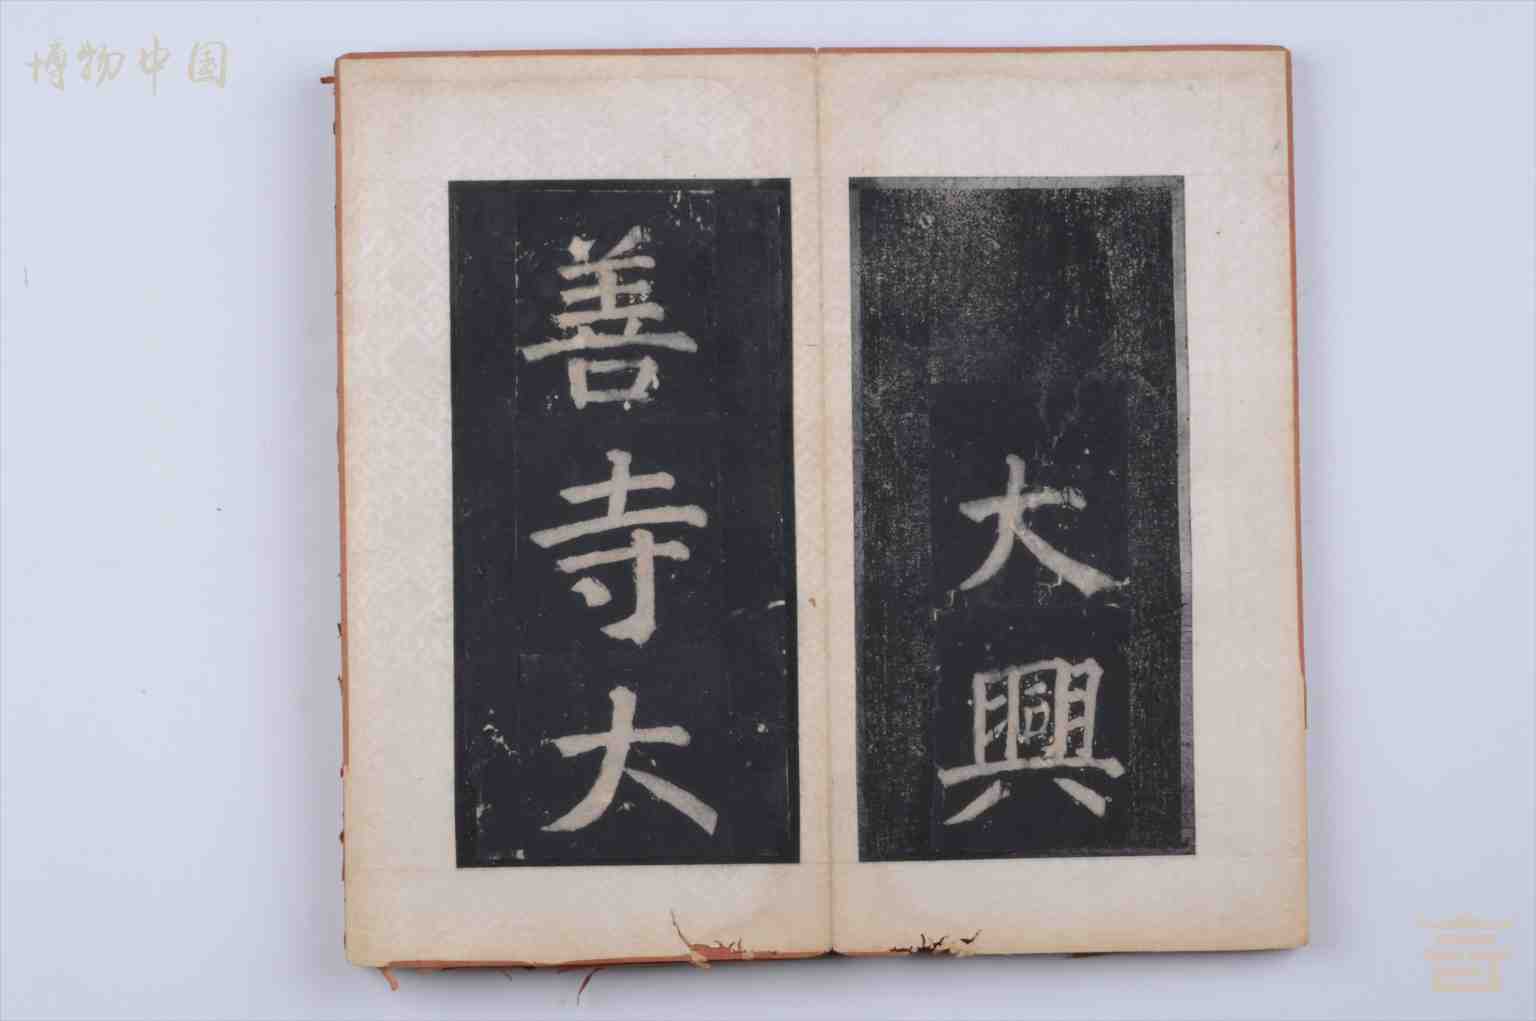 博物中国
大興
善寺大